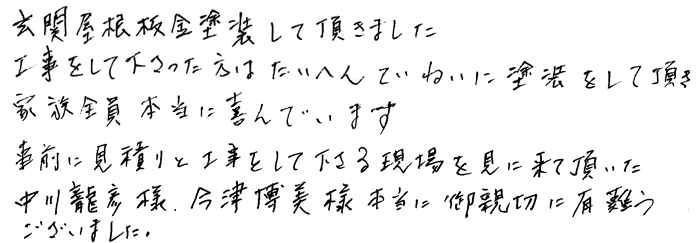 玄関屋根板金塗装して頂きました
工事をして下さった方はたいへんていねいに塗装をして頂き
家族全員本当に喜んでいます
事前に見積りと工事をして下さる現場を見に来て頂いた
中川龍彦様、今津博美様本当に御親切に有難う
ございました。